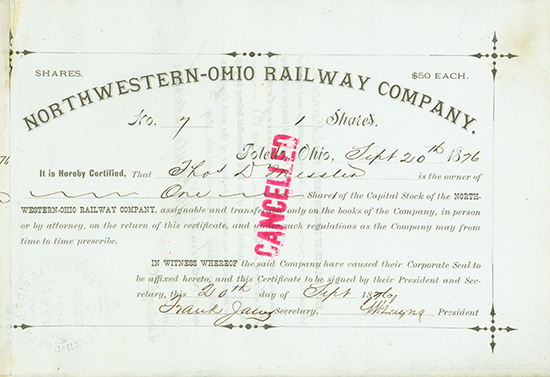 SHARES. $50 EACH.
NORTHWESTERN-OHIO RAILWAY COMPANY.
No. 7 1 Shares.
Toledo, Ohio, Sept 20th 1876
It is Hereby Certified, That Thos D Messler is the owner of
One Shares of the Capital Stock of the NORTH-
WESTERN-OHIO RAILWAY COMPANY, assignable and transferable only on the books of the Company, in person
or by attorney, on the return of this certificate, and under such regulations as the Company may from
time to time prescribe.
CANCELLED
IN WITNESS WHEREOF the said Company have caused their Corporate Seal to
be affixed hereto, and this Certificate to be signed by their President and Sec-
retary, this 20th day of Sept 1876
Frank Secretary. President
76